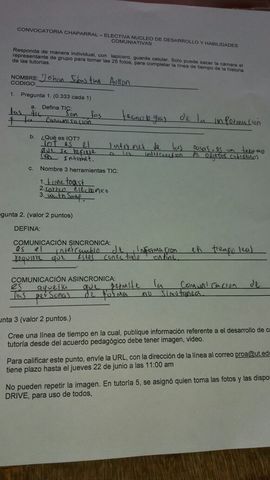 CONVOCATORIA CHAPARRAL – ELECTIVA NUCLEO DE DESARROLLO Y HABILIDADES
COMUNICATIVAS
Responda de manera individual, con lapicero, guarde celular. Solo puede sacar la cámara el
representante de grupo para tomar las 25 fotos, para completar la línea de tiempo de la historia
de las tutorías.
NOMBRE: Johan Sbastian
CODIGO:
1. Pregunta 1. (0.333 cada 1)
a. Defina TIC:
las tic son las tecnologias de la informacion
y la comunicación
b. ¿Qué es IOT?
IOT es el internet de las cosas, es un termo
que se refiere a la interconexion de objetos cotidianos
con internet.
c. Nombre 3 herramientas TIC.
1.
2. correo electronico
3.
gunta 2. (valor 2 puntos)
DEFINA:
COMUNICACIÓN SINCRONICA:
es el intercambio de informacion en tiempo real
requiere que esten conectado online.
COMUNICACIÓN ASINCRONICA:
es aquella que permite la comunicacion de
las personas de forma no simultanea.
unta 3 (valor 2 puntos.)
Cree una línea de tiempo en la cual, publique información referente a el desarrollo de c
tutoría desde del acuerdo pedagógico debe tener imagen, video.
Para calificar este punto, envíe la URL, con la dirección de la línea al correo proa@ut.ed
tiene plazo hasta el jueves 22 de junio a las 11:00 am
No pueden repetir la imagen. En tutoría 5, se asignó quien toma las fotos y las dispo
DRIVE, para uso de todos,